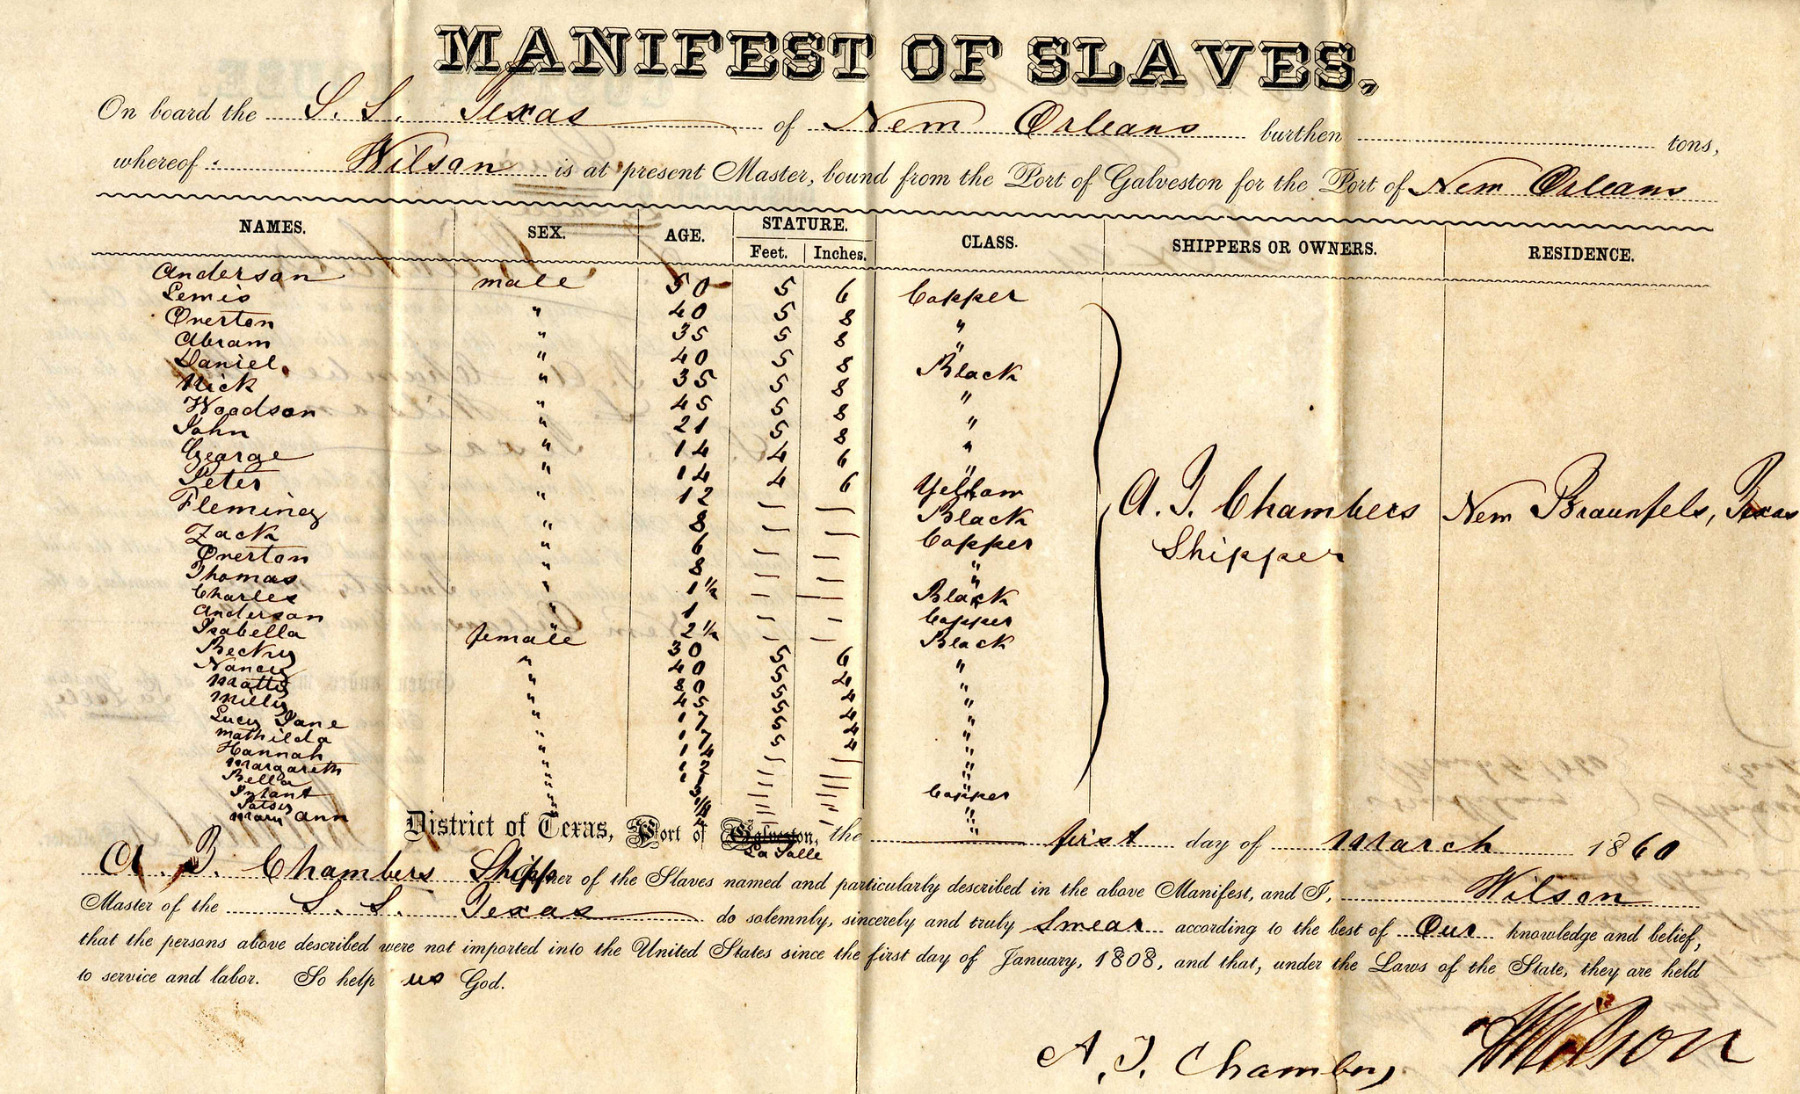 MANIFEST OF SLAVES.
On board the S. S. Texas of New Orleans burthen tons,
whereof Wilson is at present Master, bound from the Port of Galveston for the Port of New Orleans
NAMES. SEX. AGE. STATURE. Feet. Inches. CLASS. SHIPPERS OR OWNERS. RESIDENCE.
Anderson male 50 5 6 Copper
Lewis " 40 5 8 "
Overton " 35 5 8 "
Abram " 40 5 8 Black
Daniel " 35 5 8 "
Nick " 45 5 8 "
Woodson " 21 5 8 "
John " 14 4 6 "
George " 14 4 6 Yellow
Peter " 12 Black
Fleming " 8 Copper
Zack " 6 "
Overton " 8 "
Thomas " 1½ Black
Charles " 1 Copper
Anderson " 2½ Black
Isabella female 30 5 6 "
Becky " 40 5 4 "
Nancy " 80 5 4 "
Matty " 45 5 4 "
Milly " 17 5 4 "
Lucy Jane " 17 5 4 "
Mathilda " 14 "
Hannah " 12 "
Margareth "
Bella "
Infant " Copper
Patsey "
Mary Ann "
A. T. Chambers New Braunfels, Texas
Shipper
District of Texas, Port of Galveston, the first day of March 1860
La Salle
A. T. Chambers Shipper of the Slaves named and particularly described in the above Manifest, and I, Wilson
Master of the S. S. Texas do solemnly, sincerely and truly Swear according to the best of Our knowledge and belief,
that the persons above described were not imported into the United States since the first day of January, 1808, and that, under the Laws of the State, they are held
to service and labor. So help us God.
A. T. Chambers
Wilson